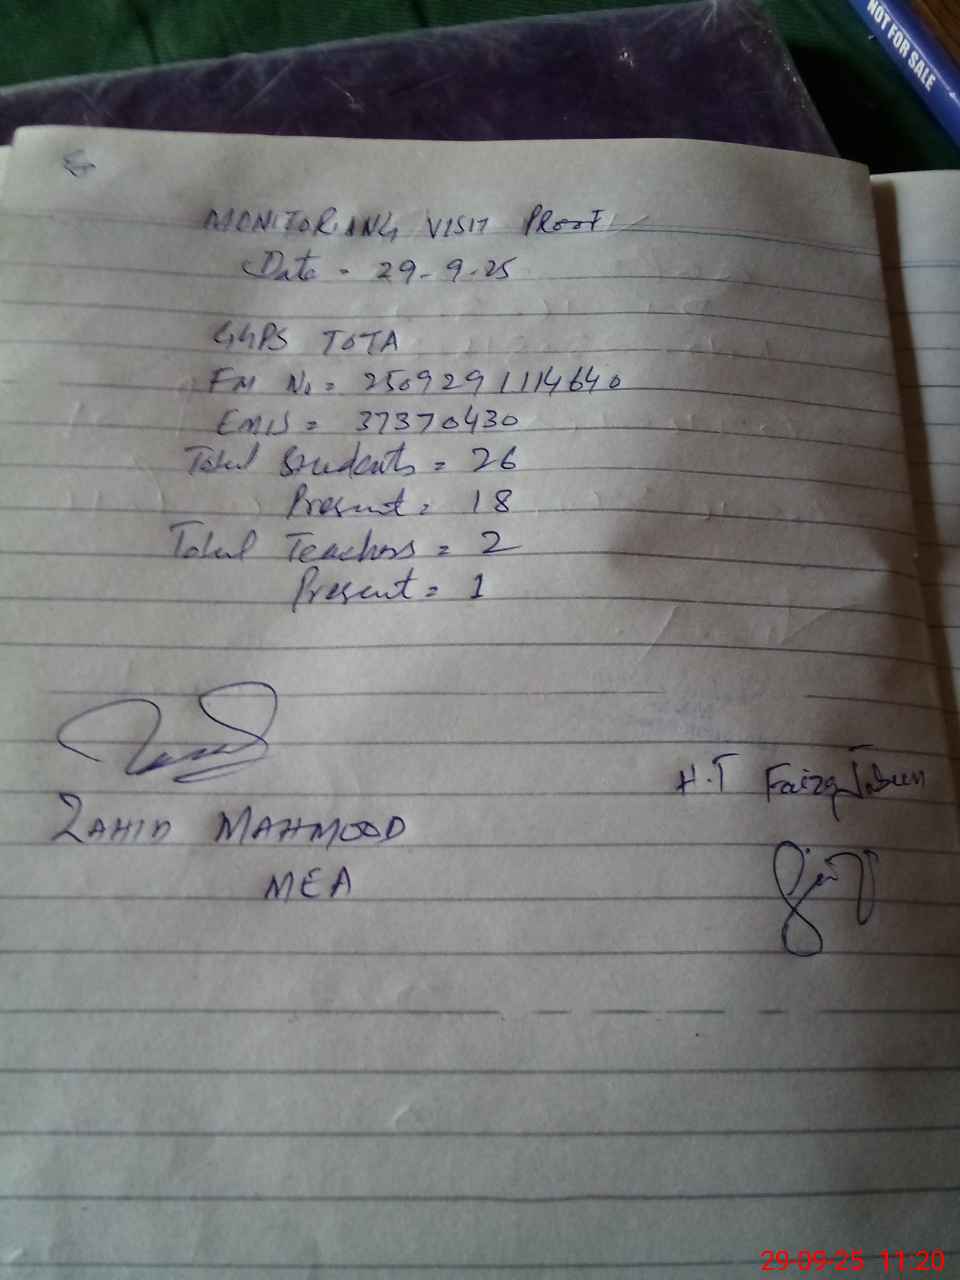 NOT FOR SALE
MONITORIANG VISIT PROOF
Date = 29-9-25
GGPS TOTA
FM No = 2509291114640
EMIS = 37370430
Total Students = 26
Present = 18
Total Teachers = 2
Present = 1
ZAHID MAHMOOD
MEA
H.T Faiza
29-09-25 11:20